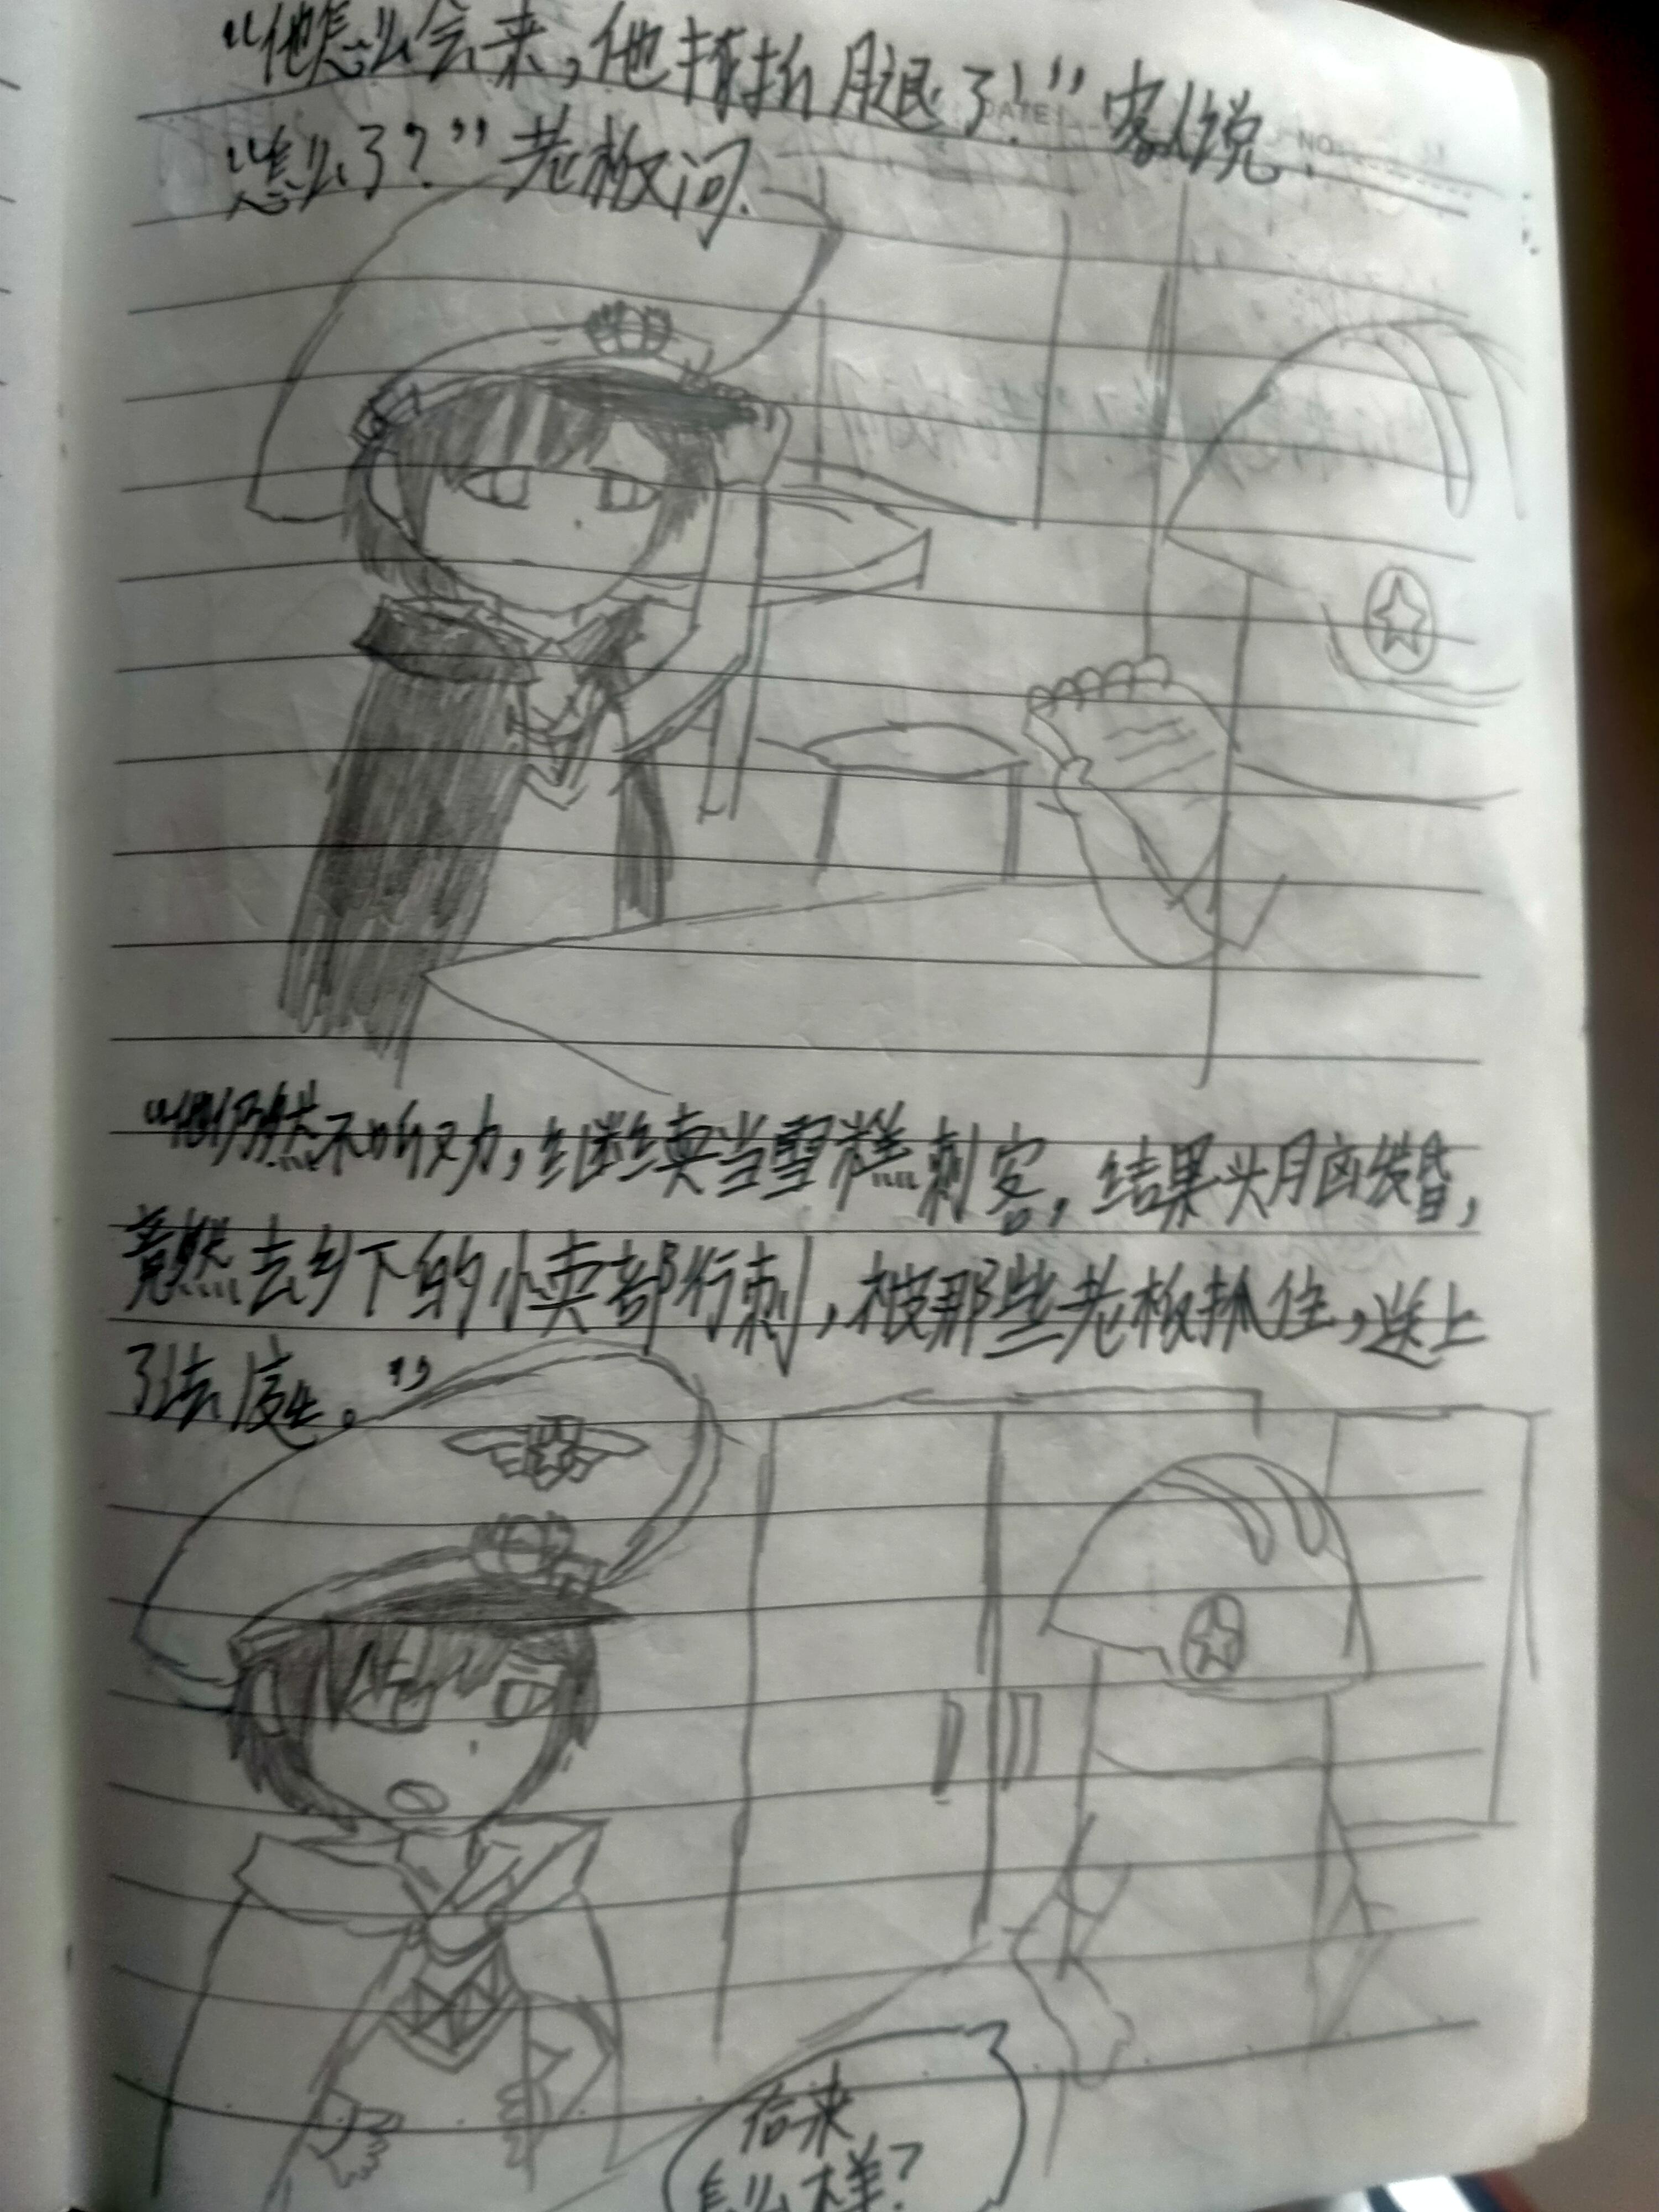 “他怎么会来，他撞折腿了！”客人说。
“怎么了？”老板问.
DATE:
NO.
“他仍然不听劝，继续当雪糕刺客，结果头脑发昏，
竟然去乡下的小卖部行刺，被那些老板抓住，送上
了法庭。”
后来
怎么样？